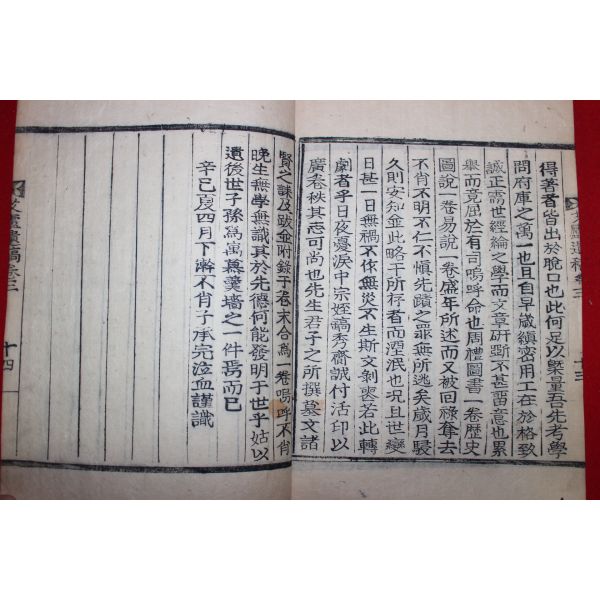 得著者皆出於脫口也此何足以槩量吾先考學
問府庫之萬一也且自早歲縝密用工在於格致
誠正需世經綸之學而文章研斲不甚留意也累
擧而竟屈於有司嗚呼命也周禮圖書一卷歷史
圖說一卷易說一卷盛年所述而又被回祿奪去
不肖不明不仁不愼先蹟之罪無所逃矣歲月駸
久則安知並此略干所存者而湮泯也况且世變
日甚一日無禍不作無災不生斯文剝喪若此轉
劇者乎日夜憂淚中宗姪鎬秀齋誠付活印以
廣春秋其志可尚也先生君子之所撰墓文諸
賢之誄及跋並附錄于卷末合爲 卷嗚呼不肖
晚生無學無識其於先德何能發明于世乎姑以
遺後世子孫爲寓慕羹墻之一件焉而已
辛巳夏四月下澣不肖子承完泣血謹識
遺稿卷三 十四